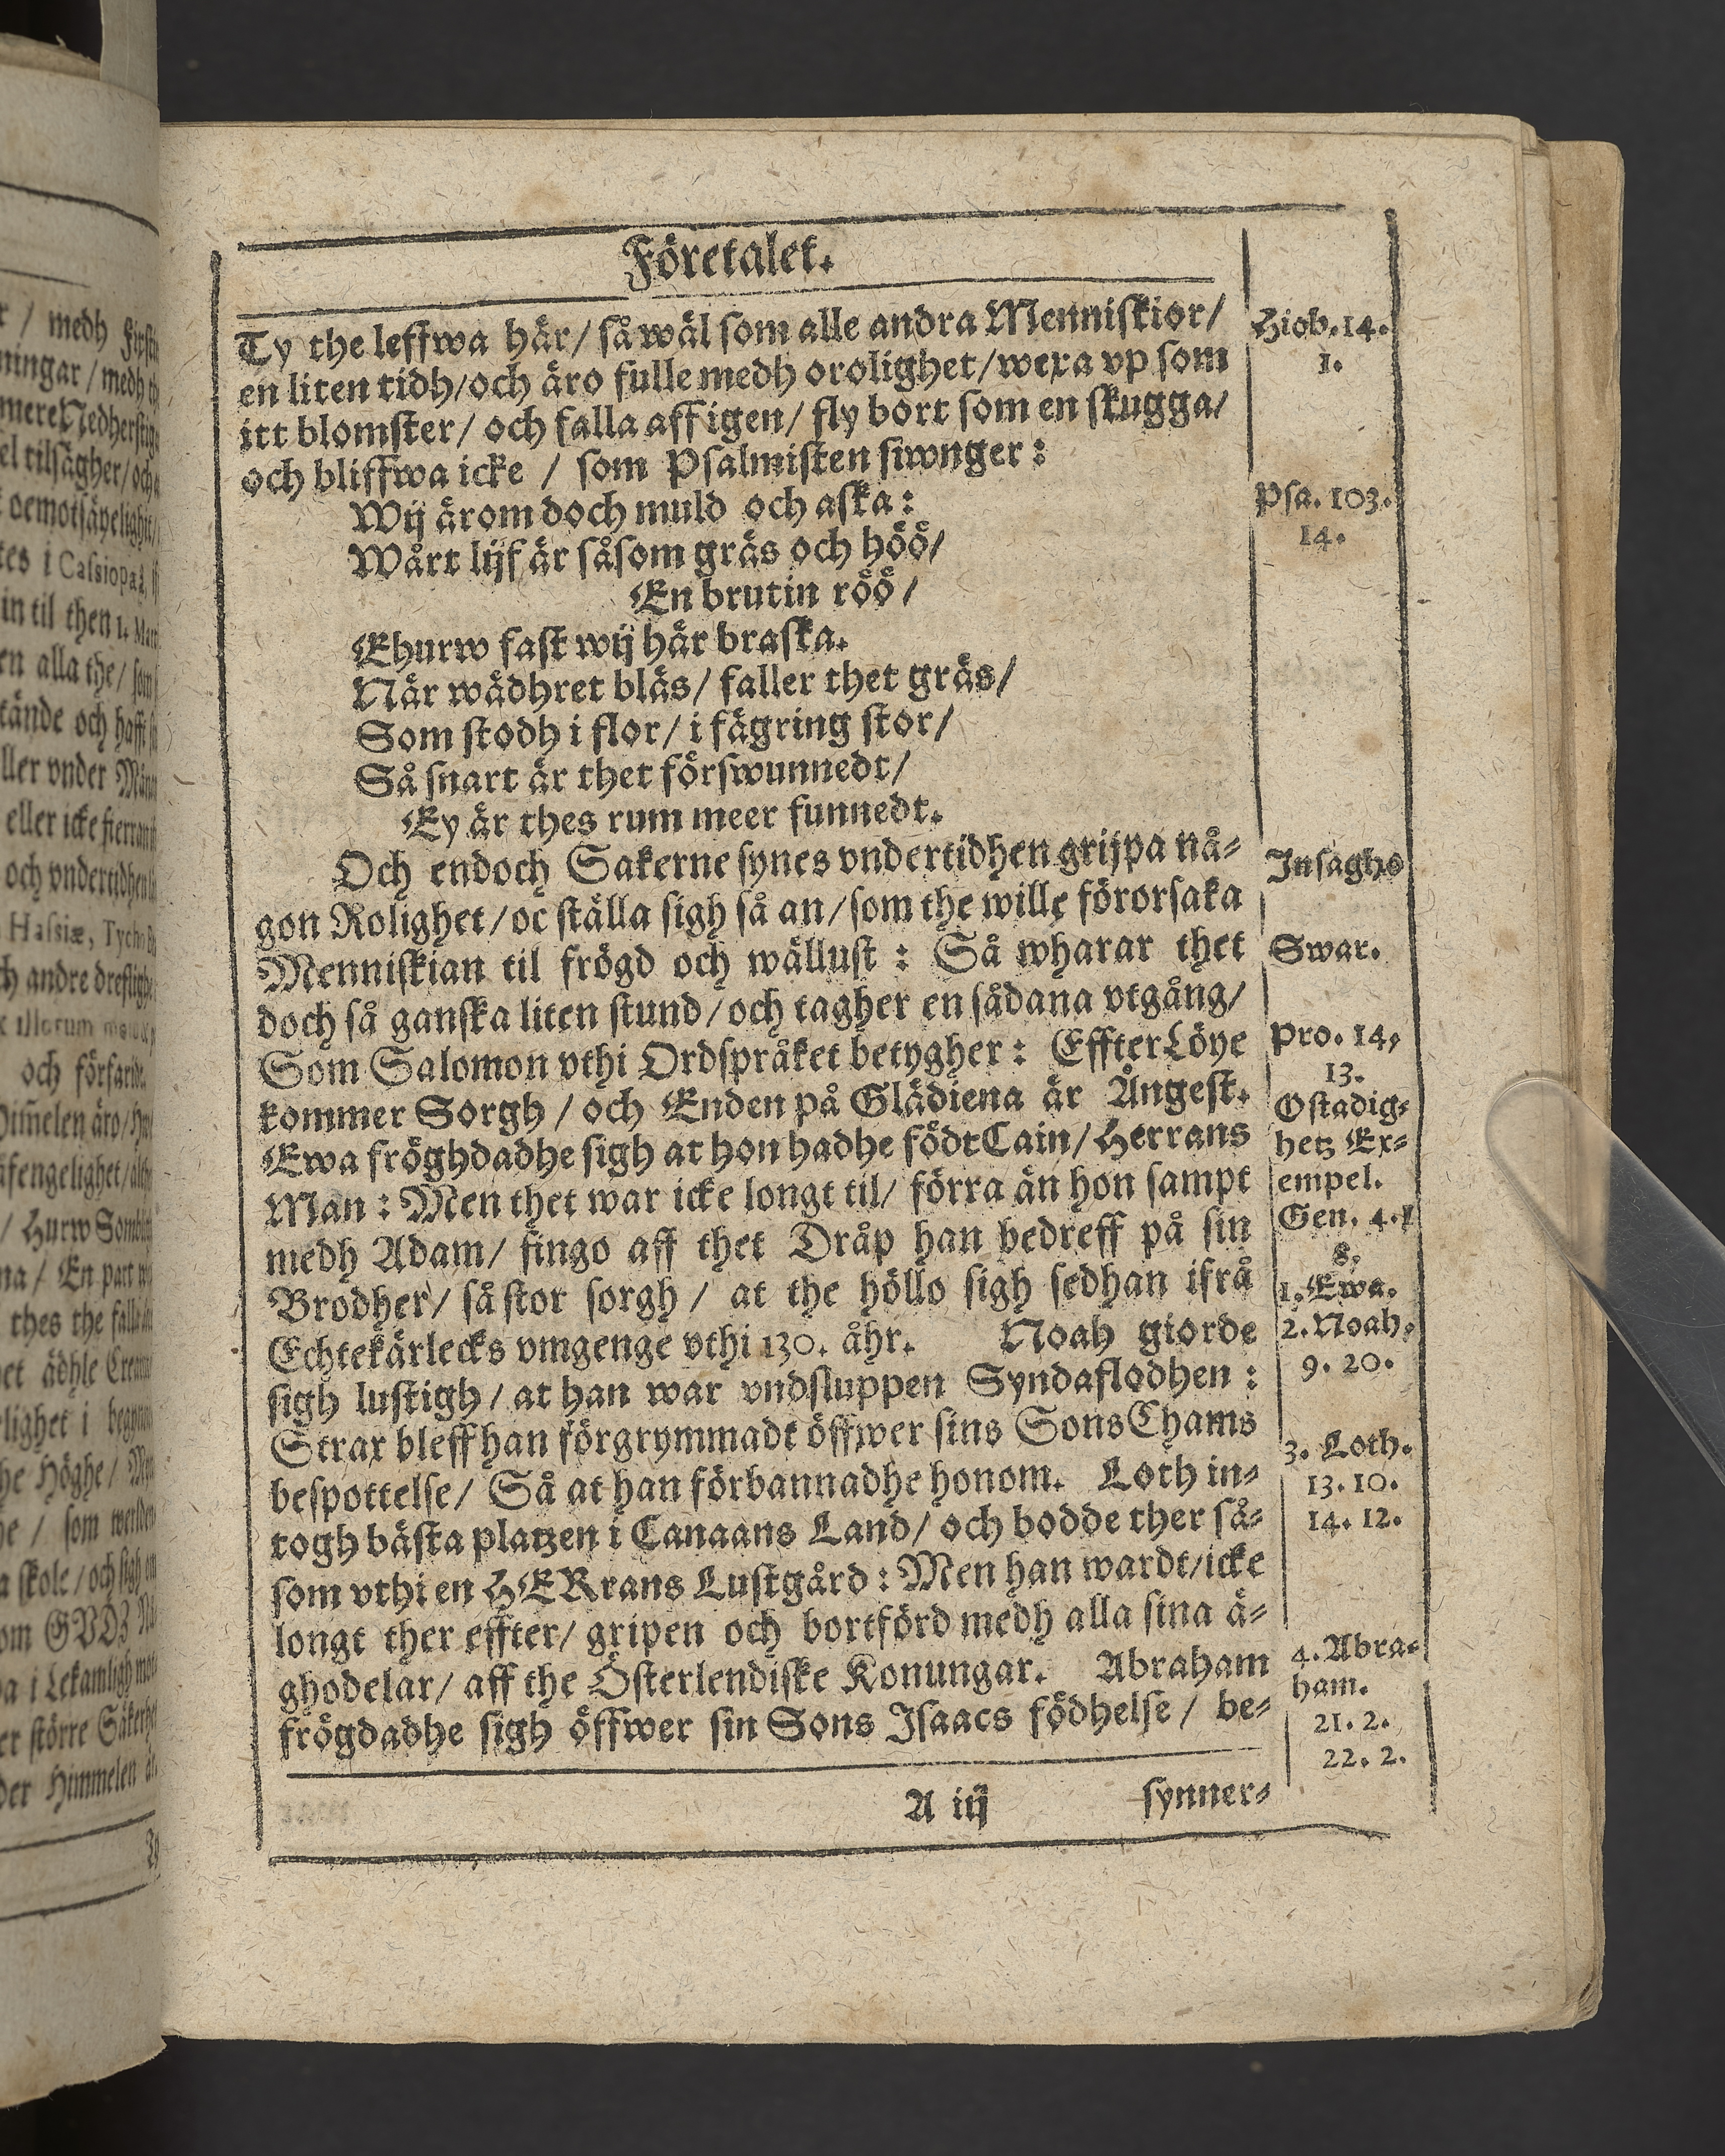 Företalet.
Ty the leffwa här/ så wäl som alle andra Menniskior/
en liten tidh/och äro fulle medh orolighet/wexa vp som
itt blomster/ och falla aff igen/ fly bort som en skugga/
och bliffwa icke / som Psalmisten siwnger:
Wij ärom doch muld och aska:
Wårt lijf är såsom gräs och höö/
En brutin röö/
Ehurw fast wij här braska.
När wädhret bläs/ faller thet gräs/
Som stodh i flor/ i fägring stor/
Så snart är thet förswunnedt/
Ey är thes rum meer funnedt.
Och endoch Sakerne synes vndertidhen grijpa nå-
gon Rolighet/oc ställa sigh så an/som the wille förorsaka
Menniskian til frögd och wällust: Så wharar thet
doch så ganska liten stund/och tagher en sådana vtgång/
Som Salomon vthi Ordspråket betygher: Effter Löye
kommer Sorgh / och Enden på Glädiena är Ångest.
Ewa fröghdadhe sigh at hon hadhe födt Cain/ Herrans
Man: Men thet war icke longt til/ förra än hon sampt
medh Adam/ fingo aff thet Dråp han bedreff på sin
Brodher/ så stor sorgh / at the höllo sigh sedhan ifrå
Echtekärlecks vmgenge vthi 130. åhr. Noah giorde
sigh lustigh/ at han war vndsluppen Syndaflodhen:
Strax bleff han förgrymmadt öffwer sins Sons Chams
bespottelse/ Så at han förbannadhe honom. Loth in-
togh bästa platzen i Canaans Land/ och bodde ther så-
som vthi en HERrans Lustgård: Men han wardt/icke
longt ther effter/ gripen och bortförd medh alla sina ä-
ghodelar/ aff the Österlendiske Konungar. Abraham
frögdadhe sigh öffwer sin Sons Isaacs födhelse/ be-
A iij synner-
Hiob.14.
1.
Psa. 103.
14.
Insaghs
Swar.
Pro. 14,
13.
Ostadig-
hetz Ex-
empel.
Gen. 4.1
8.
1. Ewa.
2. Noah,
9. 20.
3. Loth.
13. 10.
14. 12.
4. Abra-
ham.
21. 2.
22. 2.